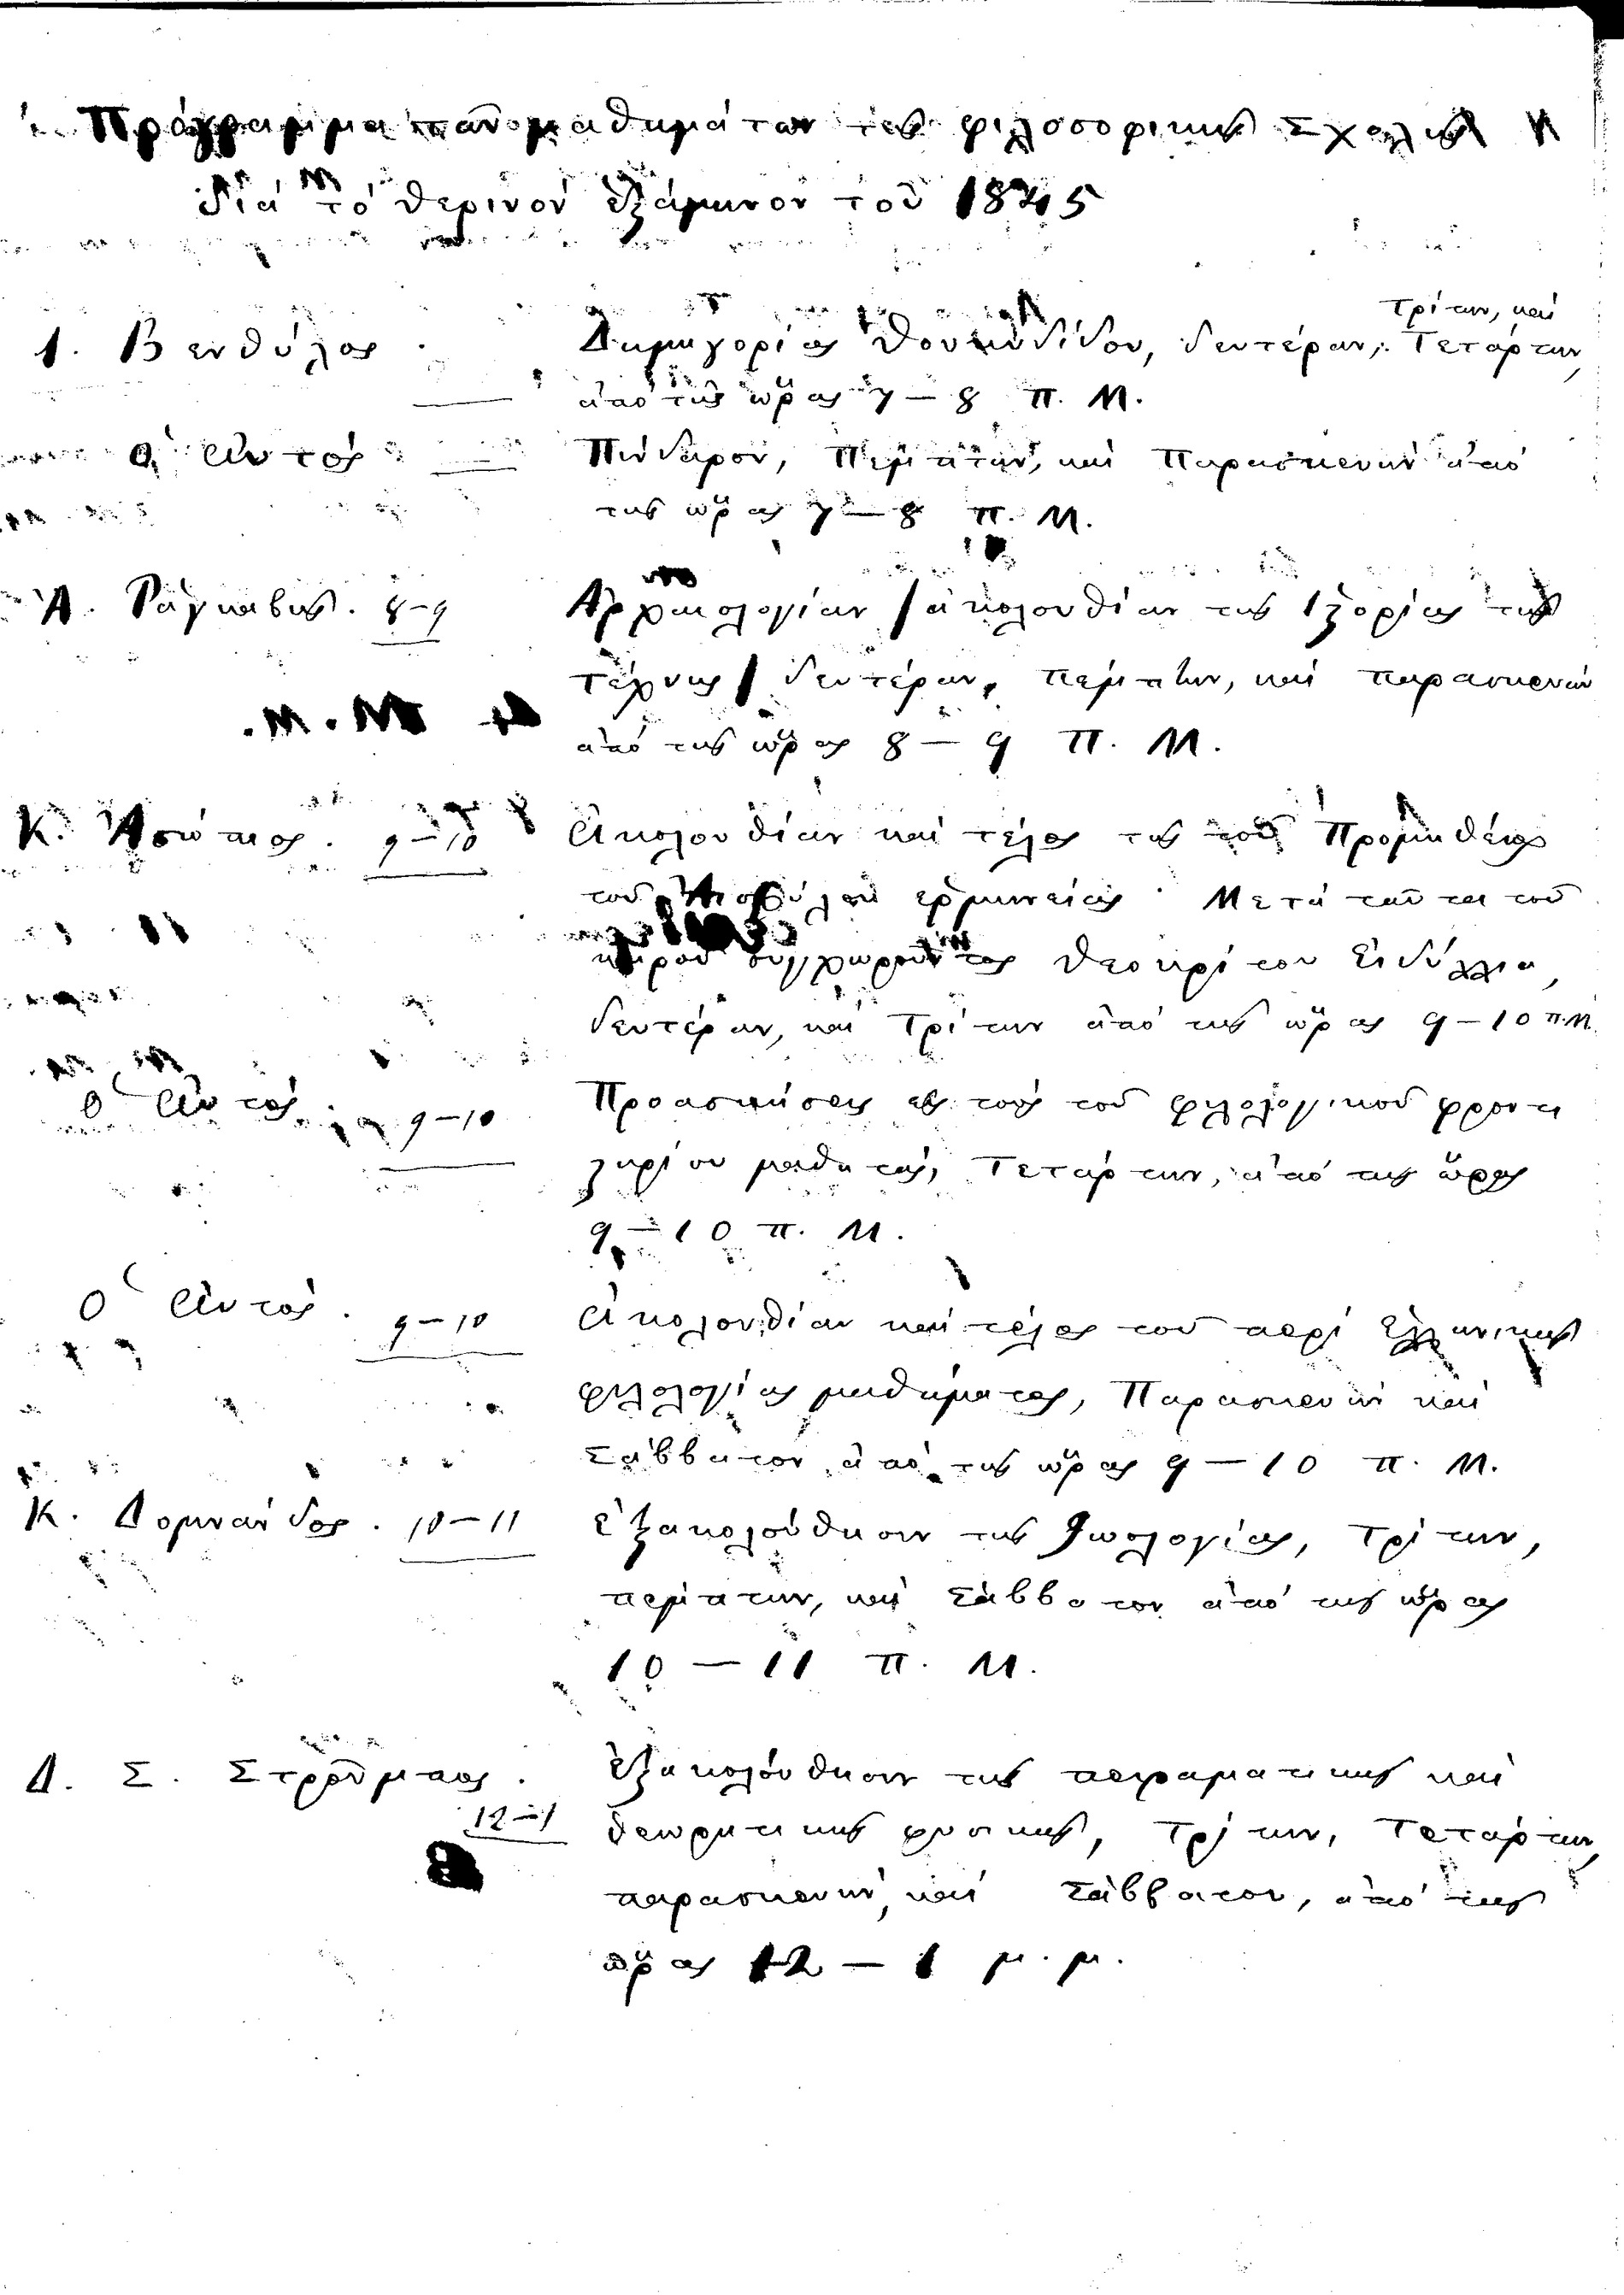 Πρόγραμμα τῶν μαθημάτων τῆς φιλοσοφικῆς Σχολῆς
διά τό θερινόν ἑξάμηνον τοῦ 1845
Τρίτην, καί
Ι. Βενθύλος. Δημηγορίας Θουκυδίδου, Δευτέραν, Τετάρτην,
ἀπό τῆς ὥρας 7 – 8 Π. Μ.
Ὁ Αὐτός Πίνδαρον, Πέμπτην, καί Παρασκευήν ἀπό
τῆς ὥρας 7 – 8 π. Μ.
Α. Ῥαγκαβῆς. 8–9 Ἀρχαιολογίαν / ἀκολουθίαν τῆς Ἱστορίας τῆς
τέχνης / Δευτέραν, πέμπτην, καί παρασκευήν
ἀπό τῆς ὥρας 8 – 9 Π. Μ.
Κ. Ἀσώπιος. 9–10 Ἀκολουθίαν καί τέλος τῆς τοῦ Προμηθέως
τοῦ Αἰσχύλου ἑρμηνείας. Μετά ταῦτα τοῦ
καιροῦ συγχωροῦντος Θεοκρίτου Εἰδύλλια,
Δευτέραν, καί Τρίτην ἀπό τῆς ὥρας 9–10 π.Μ.
Ὁ Αὐτός 9–10 Προασκήσεις εἰς τούς τοῦ φιλολογικοῦ φροντι
στηρίου μαθητάς, Τετάρτην, ἀπό τῆς ὥρας
9 – 10 π. Μ.
Ὁ Αὐτός. 9–10 Ἀκολουθίαν καί τέλος τοῦ περί Ἑλληνικῆς
φιλολογίας μαθήματος, Παρασκευήν καί
Σάββατον ἀπό τῆς ὥρας 9 – 10 π. Μ.
Κ. Δομνάνδος. 10–11 Ἐξακολούθησιν τῆς Ζωολογίας, Τρίτην,
πέμπτην, καί Σάββατον ἀπό τῆς ὥρας
10 – 11 π. Μ.
Δ. Σ. Στροῦμπος. Ἐξακολούθησιν τῆς πειραματικῆς καί
12–1 θεωρητικῆς φυσικῆς, Τρίτην, Τετάρτην,
παρασκευήν, καί Σάββατον, ἀπό τῆς
ὥρας 12 – 1 μ. μ.